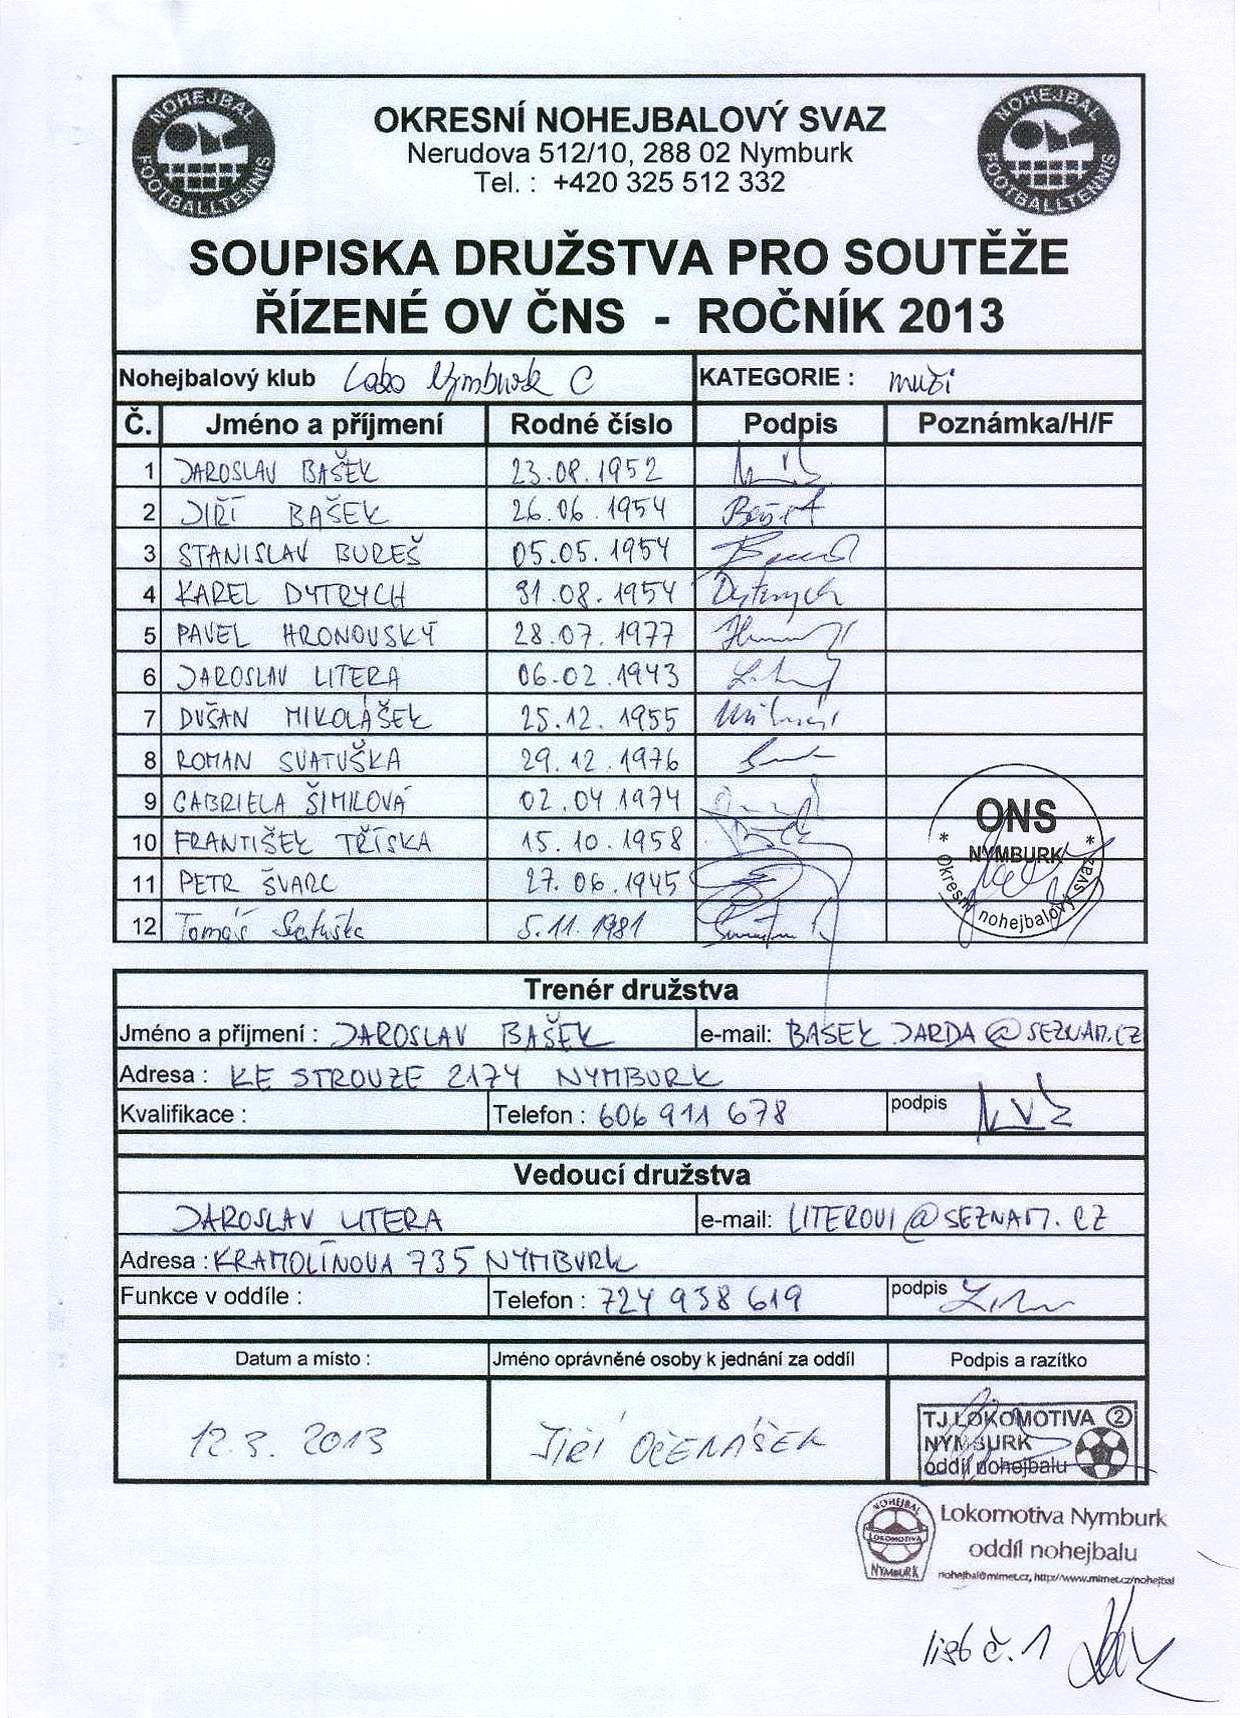 NOHEJBAL FOOTBALLTENNIS
OKRESNÍ NOHEJBALOVÝ SVAZ
NOHEJBAL FOOTBALLTENNIS
Nerudova 512/10, 288 02 Nymburk
Tel. : +420 325 512 332
SOUPISKA DRUŽSTVA PRO SOUTĚŽE
ŘÍZENÉ OV ČNS - ROČNÍK 2013
Nohejbalový klub Loko Nymburk C KATEGORIE : muži
Č. Jméno a příjmení Rodné číslo Podpis Poznámka/H/F
1 JAROSLAV BAŠEK 23.08.1952
2 JIŘÍ BAŠEK 26.06.1954
3 STANISLAV BUREŠ 05.05.1954
4 KAREL DYTRYCH 31.08.1954 Dytrych
5 PAVEL HRONOVSKÝ 28.07.1977
6 JAROSLAV LITERA 06.02.1943
7 DUŠAN MIKOLÁŠEK 25.12.1955
8 ROMAN SVATUŠKA 29.12.1976
9 GABRIELA ŠIMILOVÁ 02.04.1974
10 FRANTIŠEK TŘÍSKA 15.10.1958
11 PETR ŠVARC 27.06.1945
12 Tomáš Svatuška 5.11.1981
ONS
NYMBURK
* Okresní nohejbalový svaz *
Trenér družstva
Jméno a příjmení : JAROSLAV BAŠEK e-mail: BASEK.JARDA@SEZNAM.CZ
Adresa : KE STROUZE 2174 NYMBURK
Kvalifikace : Telefon : 606 911 678 podpis
Vedoucí družstva
JAROSLAV LITERA e-mail: LITEROVI@SEZNAM.CZ
Adresa : KRAMOLÍNOVA 735 NYMBURK
Funkce v oddíle : Telefon : 724 938 619 podpis
Datum a místo : Jméno oprávněné osoby k jednání za oddíl Podpis a razítko
12.3. 2013 JIŘÍ OČENÁŠEK
TJ LOKOMOTIVA 2
NYMBURK
oddíl nohejbalu
NOHEJBAL
LOKOMOTIVA
NYMBURK
Lokomotiva Nymburk
oddíl nohejbalu
nohejbal@mimet.cz, http://www.mimet.cz/nohejbal
list č. 1